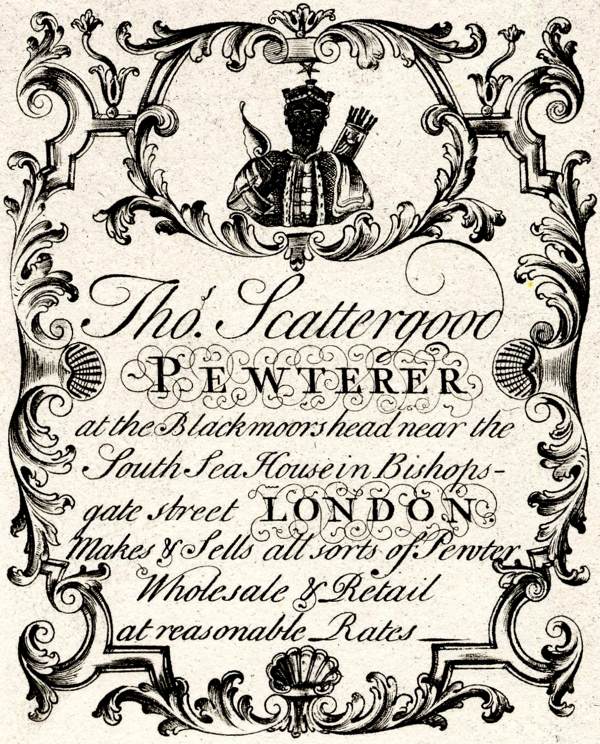 Tho.s Scattergood
PEWTERER
at the Blackmoors head near the
South Sea House in Bishops-
gate street LONDON.
Makes & Sells all sorts of Pewter
Wholesale & Retail
at reasonable Rates